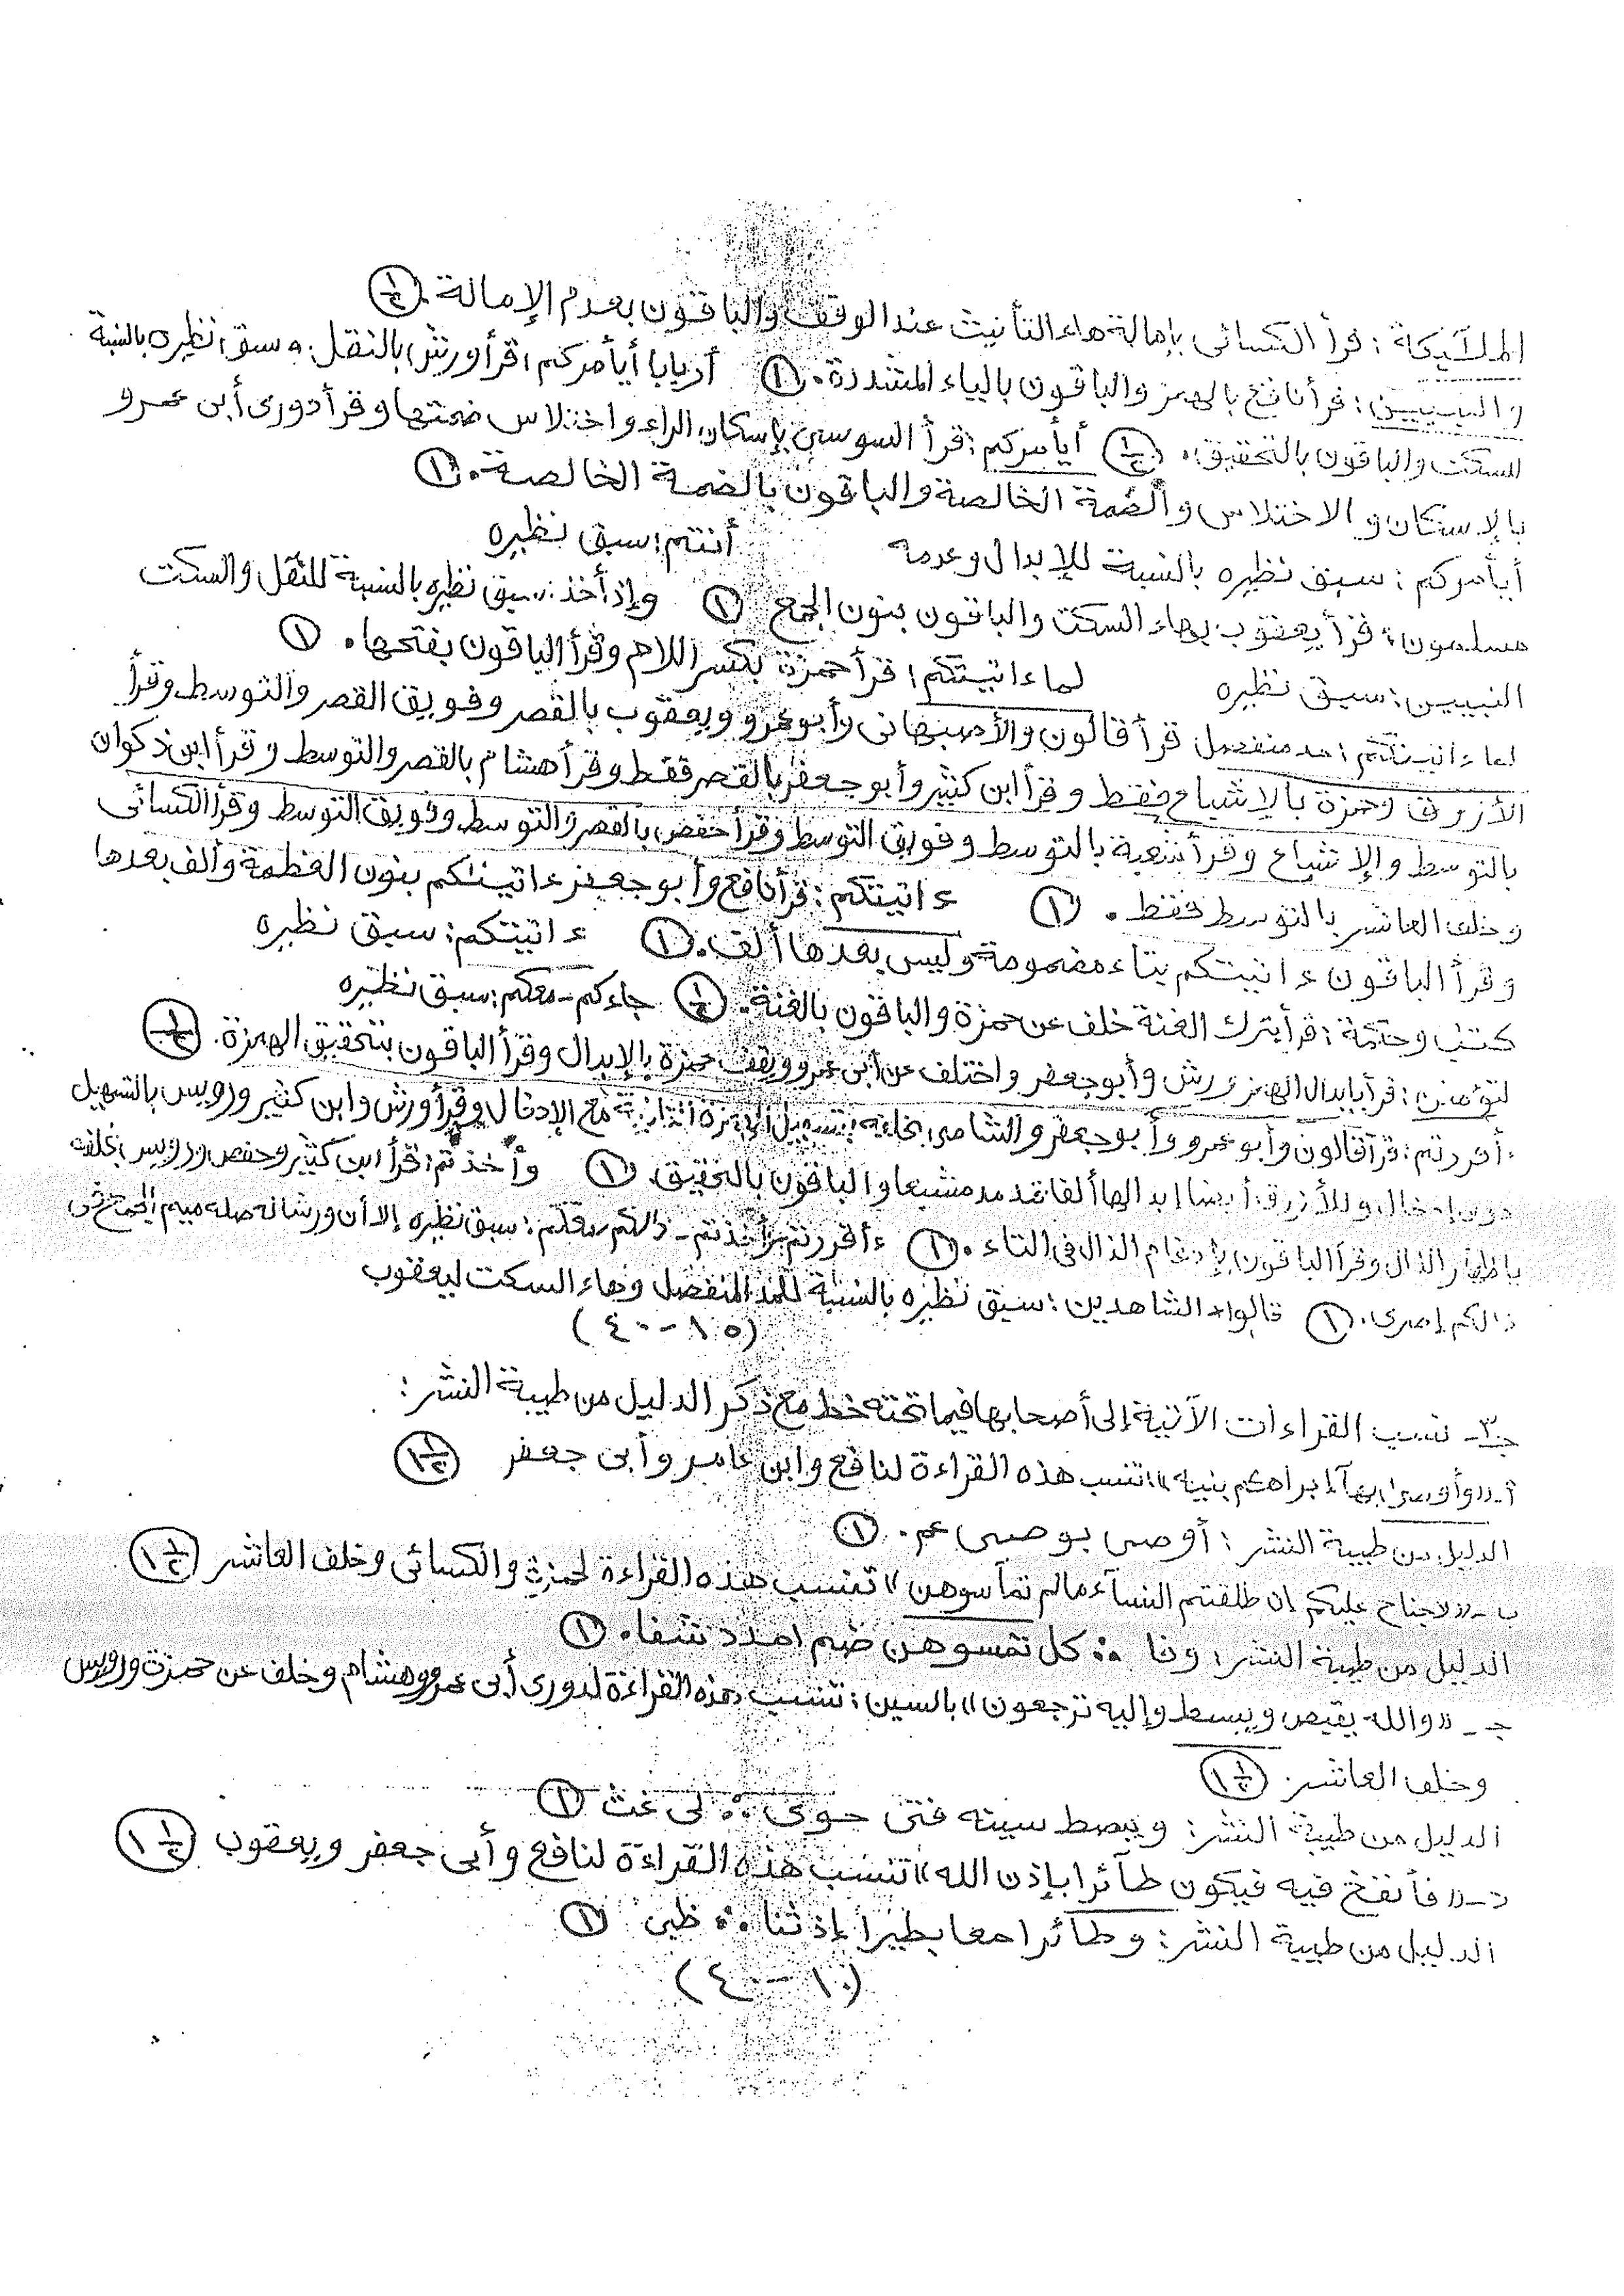 الملآئكة : قرأ الكسائى بإمالة هاء التأنيث عند الوقف والباقون بعدم الإمالة . ١/٢
والنبيين : قرأ نافع بالهمز والباقون بالياء المشددة . ١ أربابا أيأمركم : قرأ ورش بالنقل . وسبق نظيره بالنسبة
للسكت والباقون بالتحقيق . ١/٢ أيأمركم : قرأ السوسى بإسكان الراء واختلاس ضمتها وقرأ دورى أبى عمرو
بالإسكان والاختلاس والضمة الخالصة والباقون بالضمة الخالصة . ١
أيأمركم : سبق نظيره بالنسبة للإبدال وعدمه أنتم : سبق نظيره
مسلمون : قرأ يعقوب بهاء السكت والباقون بنون الجمع ١ وإذ أخذ : سبق نظيره بالنسبة للنقل والسكت
النبيين : سبق نظيره لما ءاتيتكم : قرأ حمزة بكسر اللام وقرأ الباقون بفتحها . ١
لما ءاتيتكم : مد منفصل قرأ قالون والأصبهانى وأبو عمرو ويعقوب بالقصر وفويق القصر والتوسط وقرأ
الأزرق وحمزة بالإشباع فقط وقرأ ابن كثير وأبو جعفر بالقصر فقط وقرأ هشام بالقصر والتوسط وقرأ ابن ذكوان
بالتوسط والإشباع وقرأ شعبة بالتوسط وفويق التوسط وقرأ حفص بالقصر والتوسط وفويق التوسط وقرأ الكسائى
وخلف العاشر بالتوسط فقط . ١ ءاتيتكم : قرأ نافع وأبو جعفر ءاتينـٰكم بنون العظمة وألف بعدها
وقرأ الباقون ءاتيتكم بتاء مضمومة وليس بعدها ألف . ١ ءاتيتكم : سبق نظيره
كتب وحكمة : قرأ بترك الغنة خلف عن حمزة والباقون بالغنة . ١/٢ جاءكم - معكم : سبق نظيره
لتؤمنن : قرأ بإبدال الهمز ورش وأبو جعفر واختلف عن أبى عمرو ويقف حمزة بالإبدال وقرأ الباقون بتحقيق الهمزة . ١/٢
ءأقررتم : قرأ قالون وأبو عمرو وأبو جعفر والشامى بخلفه بتسهيل الهمزة الثانية مع الإدخال وقرأ ورش وابن كثير ورويس بالتسهيل
دون إدخال وللأزرق أيضا إبدالها ألفا تمد مد مشبعا والباقون بالتحقيق . ١ وأخذتم : قرأ ابن كثير وحفص ورويس بخلفه
بإظهار الذال وقرأ الباقون بإدغام الذال فى التاء . ١ ءأقررتم وأخذتم - ذالكم - معكم : سبق نظيره إلا أن ورشا له صلة ميم الجمع فى
ذالكم إصرى . ١ قالوا ، الشاهدين : سبق نظيره بالنسبة للمد المنفصل وهاء السكت ليعقوب
(١٥ - ٤٠)
جـ٣- نسب القراءات الآتية إلى أصحابها فيما تحته خط مع ذكر الدليل من طيبة النشر :
أ - «وأوصى بهآ إبراهم بنيه» : تنسب هذه القراءة لنافع وابن عامر وأبى جعفر ١ ١/٢
الدليل من طيبة النشر : أوصى بوصى عم . ١
ب - «لا جناح عليكم إن طلقتم النسآء مالم تمآسوهن» تنسب هذه القراءة لحمزة والكسائى وخلف العاشر ١ ١/٢
الدليل من طيبة النشر : وفا ∴ كل تمسوهن ضم امدد شفا . ١
جـ - «والله يقبض ويبسط وإليه ترجعون» بالسين : تنسب هذه القراءة لدورى أبى عمرو وهشام وخلف عن حمزة ورويس
وخلف العاشر . ١ ١/٢
الدليل من طيبة النشر : ويبصط سينه فتى حوى ∴ لى غث ١
د - «فأنفخ فيه فيكون طآئرا بإذن الله» تنسب هذه القراءة لنافع وأبى جعفر ويعقوب ١ ١/٢
الدليل من طيبة النشر : وطائرا معا بطيرا إذ ثنا ∴ ظبى ١
(١٠ - ٤٠)